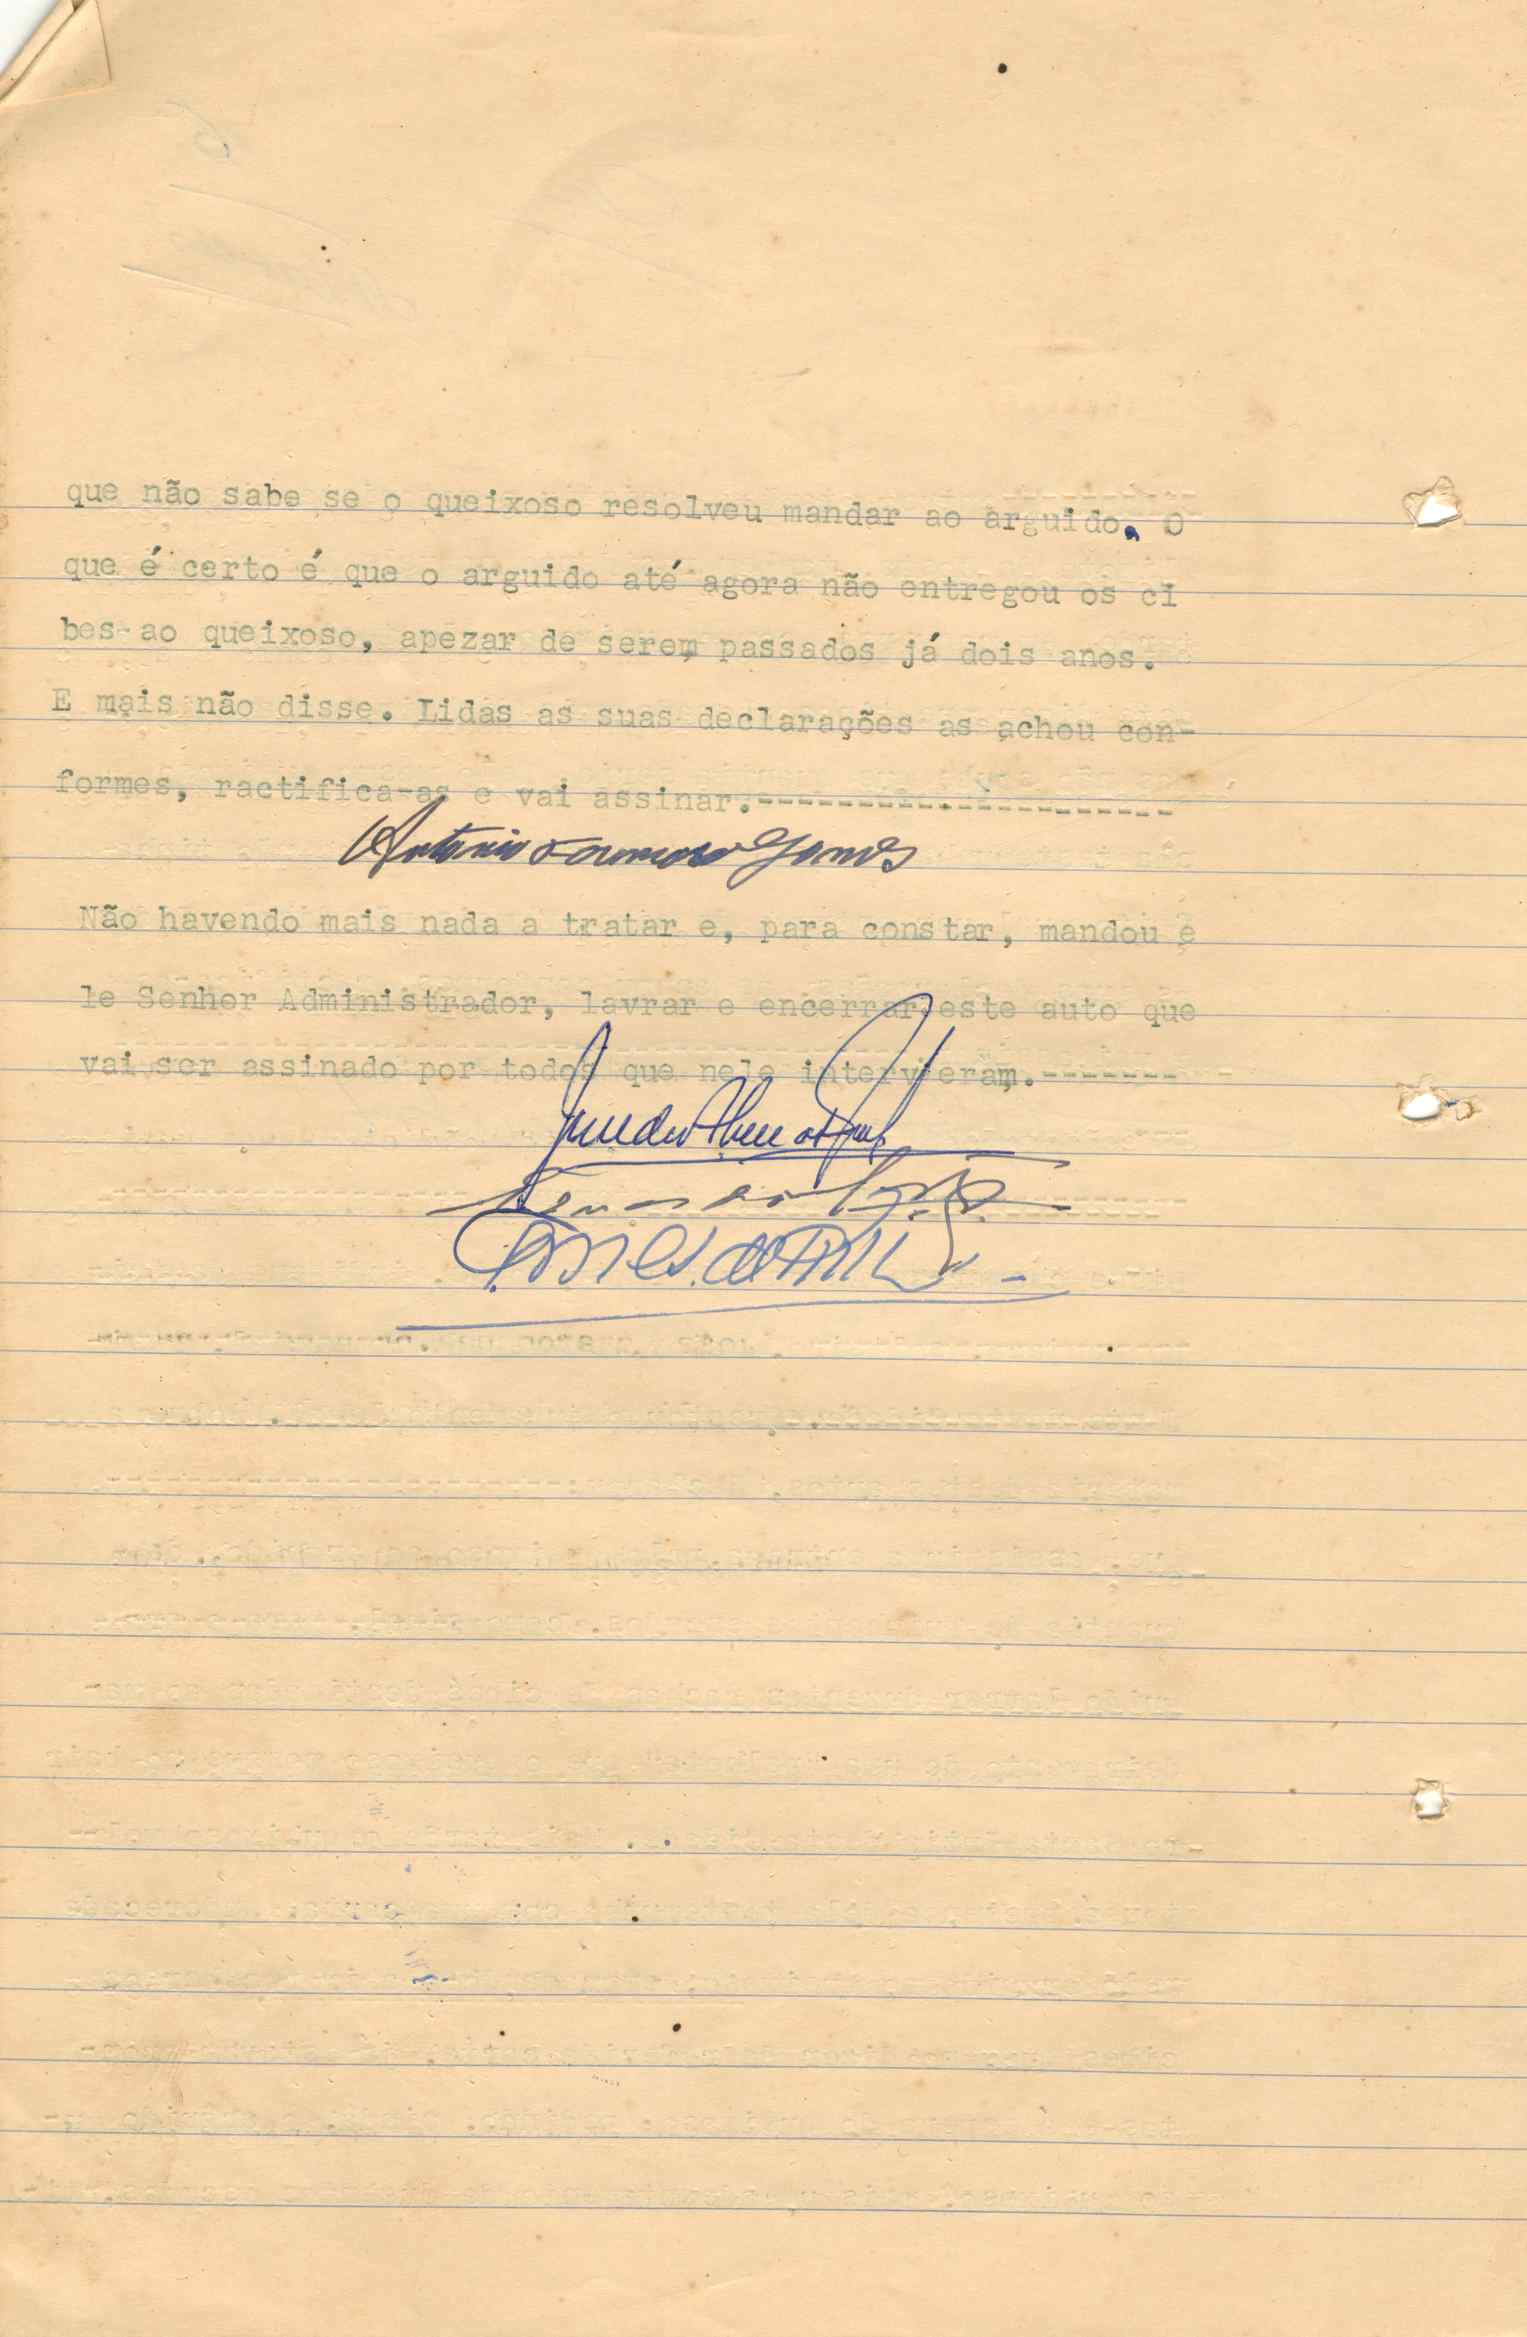 que não sabe se o queixoso resolveu mandar ao arguido. O
que é certo é que o arguido até agora não entregou os ci
bes ao queixoso, apezar de serem passados já dois anos.
E mais não disse. Lidas as suas declarações as achou con-
formes, ractifica-as e vai assinar.----------------------
Antonio Formoso Gomes
Não havendo mais nada a tratar e, para constar, mandou e
le Senhor Administrador, lavrar e encerrar este auto que
vai ser assinado por todos que nele intervieram.-------